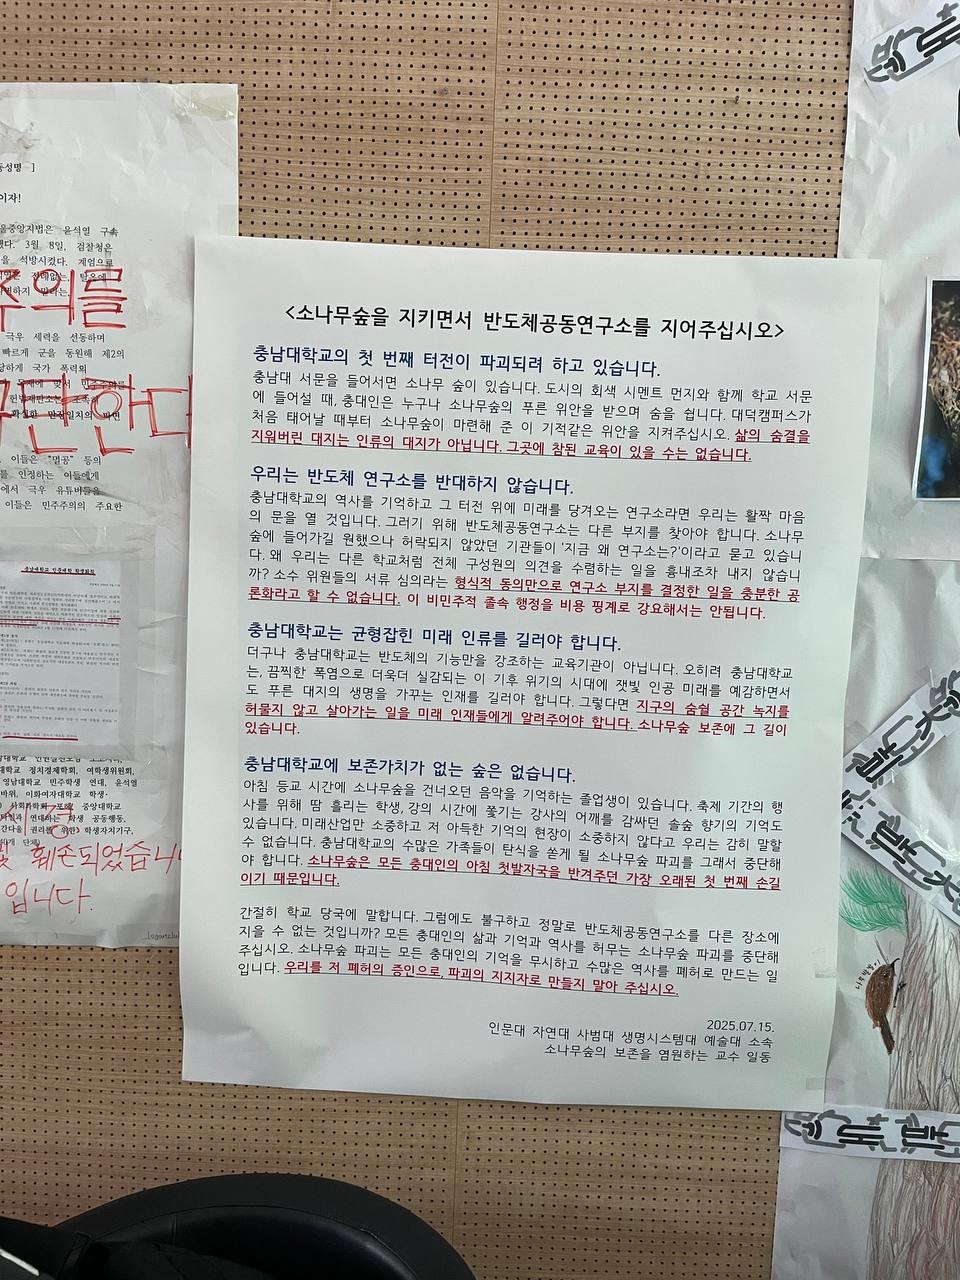 <소나무숲을 지키면서 반도체공동연구소를 지어주십시오>
충남대학교의 첫 번째 터전이 파괴되려 하고 있습니다.
충남대 서문을 들어서면 소나무 숲이 있습니다. 도시의 회색 시멘트 먼지와 함께 학교 서문
에 들어설 때, 충대인은 누구나 소나무숲의 푸른 위안을 받으며 숨을 쉽니다. 대덕캠퍼스가
처음 태어날 때부터 소나무숲이 마련해 준 이 기적같은 위안을 지켜주십시오. 삶의 숨결을
지워버린 대지는 인류의 대지가 아닙니다. 그곳에 참된 교육이 있을 수는 없습니다.
우리는 반도체 연구소를 반대하지 않습니다.
충남대학교의 역사를 기억하고 그 터전 위에 미래를 당겨오는 연구소라면 우리는 활짝 마음
의 문을 열 것입니다. 그러기 위해 반도체공동연구소는 다른 부지를 찾아야 합니다. 소나무
숲에 들어가길 원했으나 허락되지 않았던 기관들이 '지금 왜 연구소는?'이라고 묻고 있습니
다. 왜 우리는 다른 학교처럼 전체 구성원의 의견을 수렴하는 일을 흉내조차 내지 않습니
까? 소수 위원들의 서류 심의라는 형식적 동의만으로 연구소 부지를 결정한 일을 충분한 공
론화라고 할 수 없습니다. 이 비민주적 졸속 행정을 비용 핑계로 강요해서는 안됩니다.
충남대학교는 균형잡힌 미래 인류를 길러야 합니다.
더구나 충남대학교는 반도체의 기능만을 강조하는 교육기관이 아닙니다. 오히려 충남대학교
는, 끔찍한 폭염으로 더욱더 실감되는 이 기후 위기의 시대에 잿빛 인공 미래를 예감하면서
도 푸른 대지의 생명을 가꾸는 인재를 길러야 합니다. 그렇다면 지구의 숨쉴 공간 녹지를
허물지 않고 살아가는 일을 미래 인재들에게 알려주어야 합니다. 소나무숲 보존에 그 길이
있습니다.
충남대학교에 보존가치가 없는 숲은 없습니다.
아침 등교 시간에 소나무숲을 건너오던 음악을 기억하는 졸업생이 있습니다. 축제 기간의 행
사를 위해 땀 흘리는 학생, 강의 시간에 쫓기는 강사의 어깨를 감싸던 솔숲 향기의 기억도
있습니다. 미래산업만 소중하고 저 아득한 기억의 현장이 소중하지 않다고 우리는 감히 말할
수 없습니다. 충남대학교의 수많은 가족들이 탄식을 쏟게 될 소나무숲 파괴를 그래서 중단해
야 합니다. 소나무숲은 모든 충대인의 아침 첫발자국을 반겨주던 가장 오래된 첫 번째 손길
이기 때문입니다.
간절히 학교 당국에 말합니다. 그럼에도 불구하고 정말로 반도체공동연구소를 다른 장소에
지을 수 없는 것입니까? 모든 충대인의 삶과 기억과 역사를 허무는 소나무숲 파괴를 중단해
주십시오. 소나무숲 파괴는 모든 충대인의 기억을 무시하고 수많은 역사를 폐허로 만드는 일
입니다. 우리를 저 폐허의 증인으로, 파괴의 지지자로 만들지 말아 주십시오.
2025.07.15.
인문대 자연대 사범대 생명시스템대 예술대 소속
소나무숲의 보존을 염원하는 교수 일동
동성명 ]
이자!
울중앙지법은 윤석열 구속
했다. 3월 8일, 검찰청은
을 석방시켰다. 계엄으로
주의를
극우 세력을 선동하며
빠르게 군을 동원해 제2의
당하게 국가 폭력와
규탄한다
이들은 "멸공" 등의
를 인정하는 이들에게
에서 극우 유튜버들을
이들은 민주주의의 주요한
충남대학교 인문대학 학생회칙
대학교 정치경제학회, 여학생위원회,
영남대학교 민주학생 연대, 윤석열
바위, 이화여자대학교 학생·
사회과학회 포헤, 중앙대학교
훼손되었습니
입니다.
나무발발이